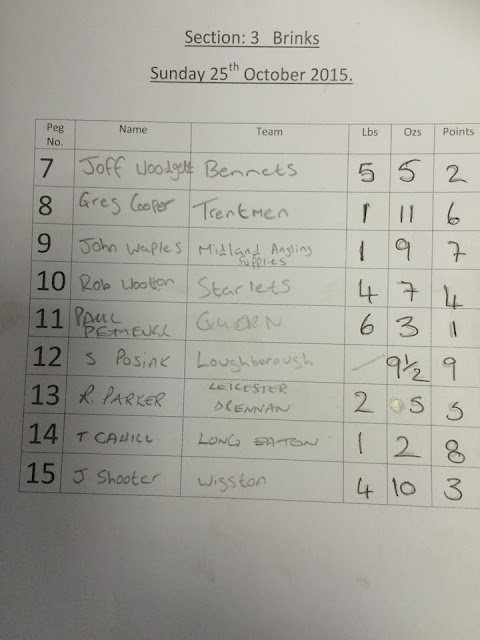 Section: 3 Brinks
Sunday 25th October 2015.
Peg No. Name Team Lbs Ozs Points
7 Joff Woodgett Bennets 5 5 2
8 Greg Cooper Trentmen 1 11 6
9 John Waples Midland Angling Supplies 1 9 7
10 Rob Wootton Starlets 4 7 4
11 PAUL QUORN 6 3 1
12 S POSIAK Loughborough 9½ 9
13 R. PARKER LEICESTER DRENNAN 2 5 5
14 T CAHILL LONG EATON 1 2 8
15 J Shooter Wigston 4 10 3